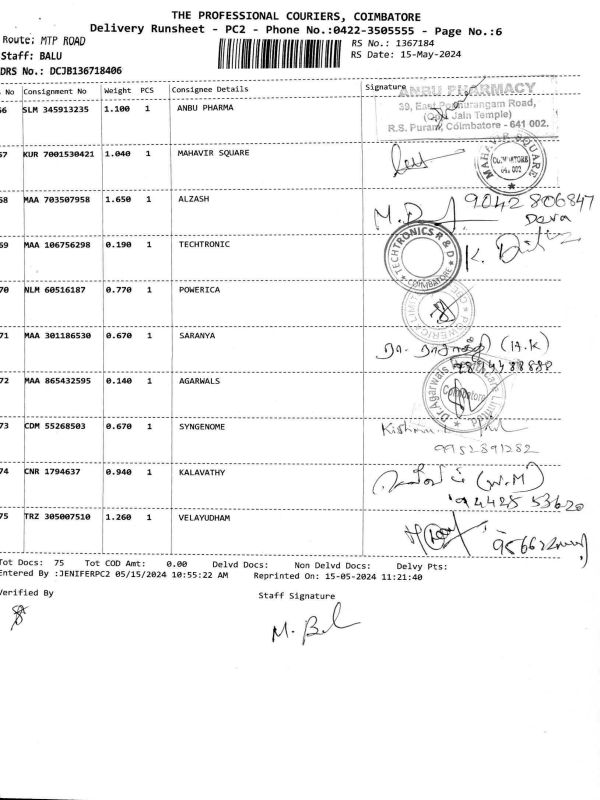 THE PROFESSIONAL COURIERS, COIMBATORE
Delivery Runsheet - PC2 - Phone No.:0422-3505555 - Page No.:6
Route: MTP ROAD
RS No.: 1367184
Staff: BALU
RS Date: 15-May-2024
DRS No.: DCJB136718406
No Consignment No Weight PCS Consignee Details Signature
66 SLM 345913235 1.100 1 ANBU PHARMA
ANBU PHARMACY
39, East Ponnurangam Road,
(Opp. Jain Temple)
R.S. Puram, Coimbatore - 641 002.
67 KUR 7001530421 1.040 1 MAHAVIR SQUARE
MAHAVIR SQUARE
COIMBATORE
68 MAA 703507958 1.650 1 ALZASH
9042806847
Deva
69 MAA 106756298 0.190 1 TECHTRONIC
TECHTRONICS R & D
COIMBATORE
K.
70 NLM 60516187 0.770 1 POWERICA
POWERICA LIMITED
71 MAA 301186530 0.670 1 SARANYA
(A.K)
72 MAA 865432595 0.140 1 AGARWALS
Dr. Agarwals
Coimbatore
73 CDM 55268503 0.670 1 SYNGENOME
9952891282
74 CNR 1794637 0.940 1 KALAVATHY
94425 53620
75 TRZ 305007510 1.260 1 VELAYUDHAM
Tot Docs: 75 Tot COD Amt: 0.00 Delvd Docs: Non Delvd Docs: Delvy Pts:
Entered By :JENIFERPC2 05/15/2024 10:55:22 AM Reprinted On: 15-05-2024 11:21:40
Verified By
Staff Signature